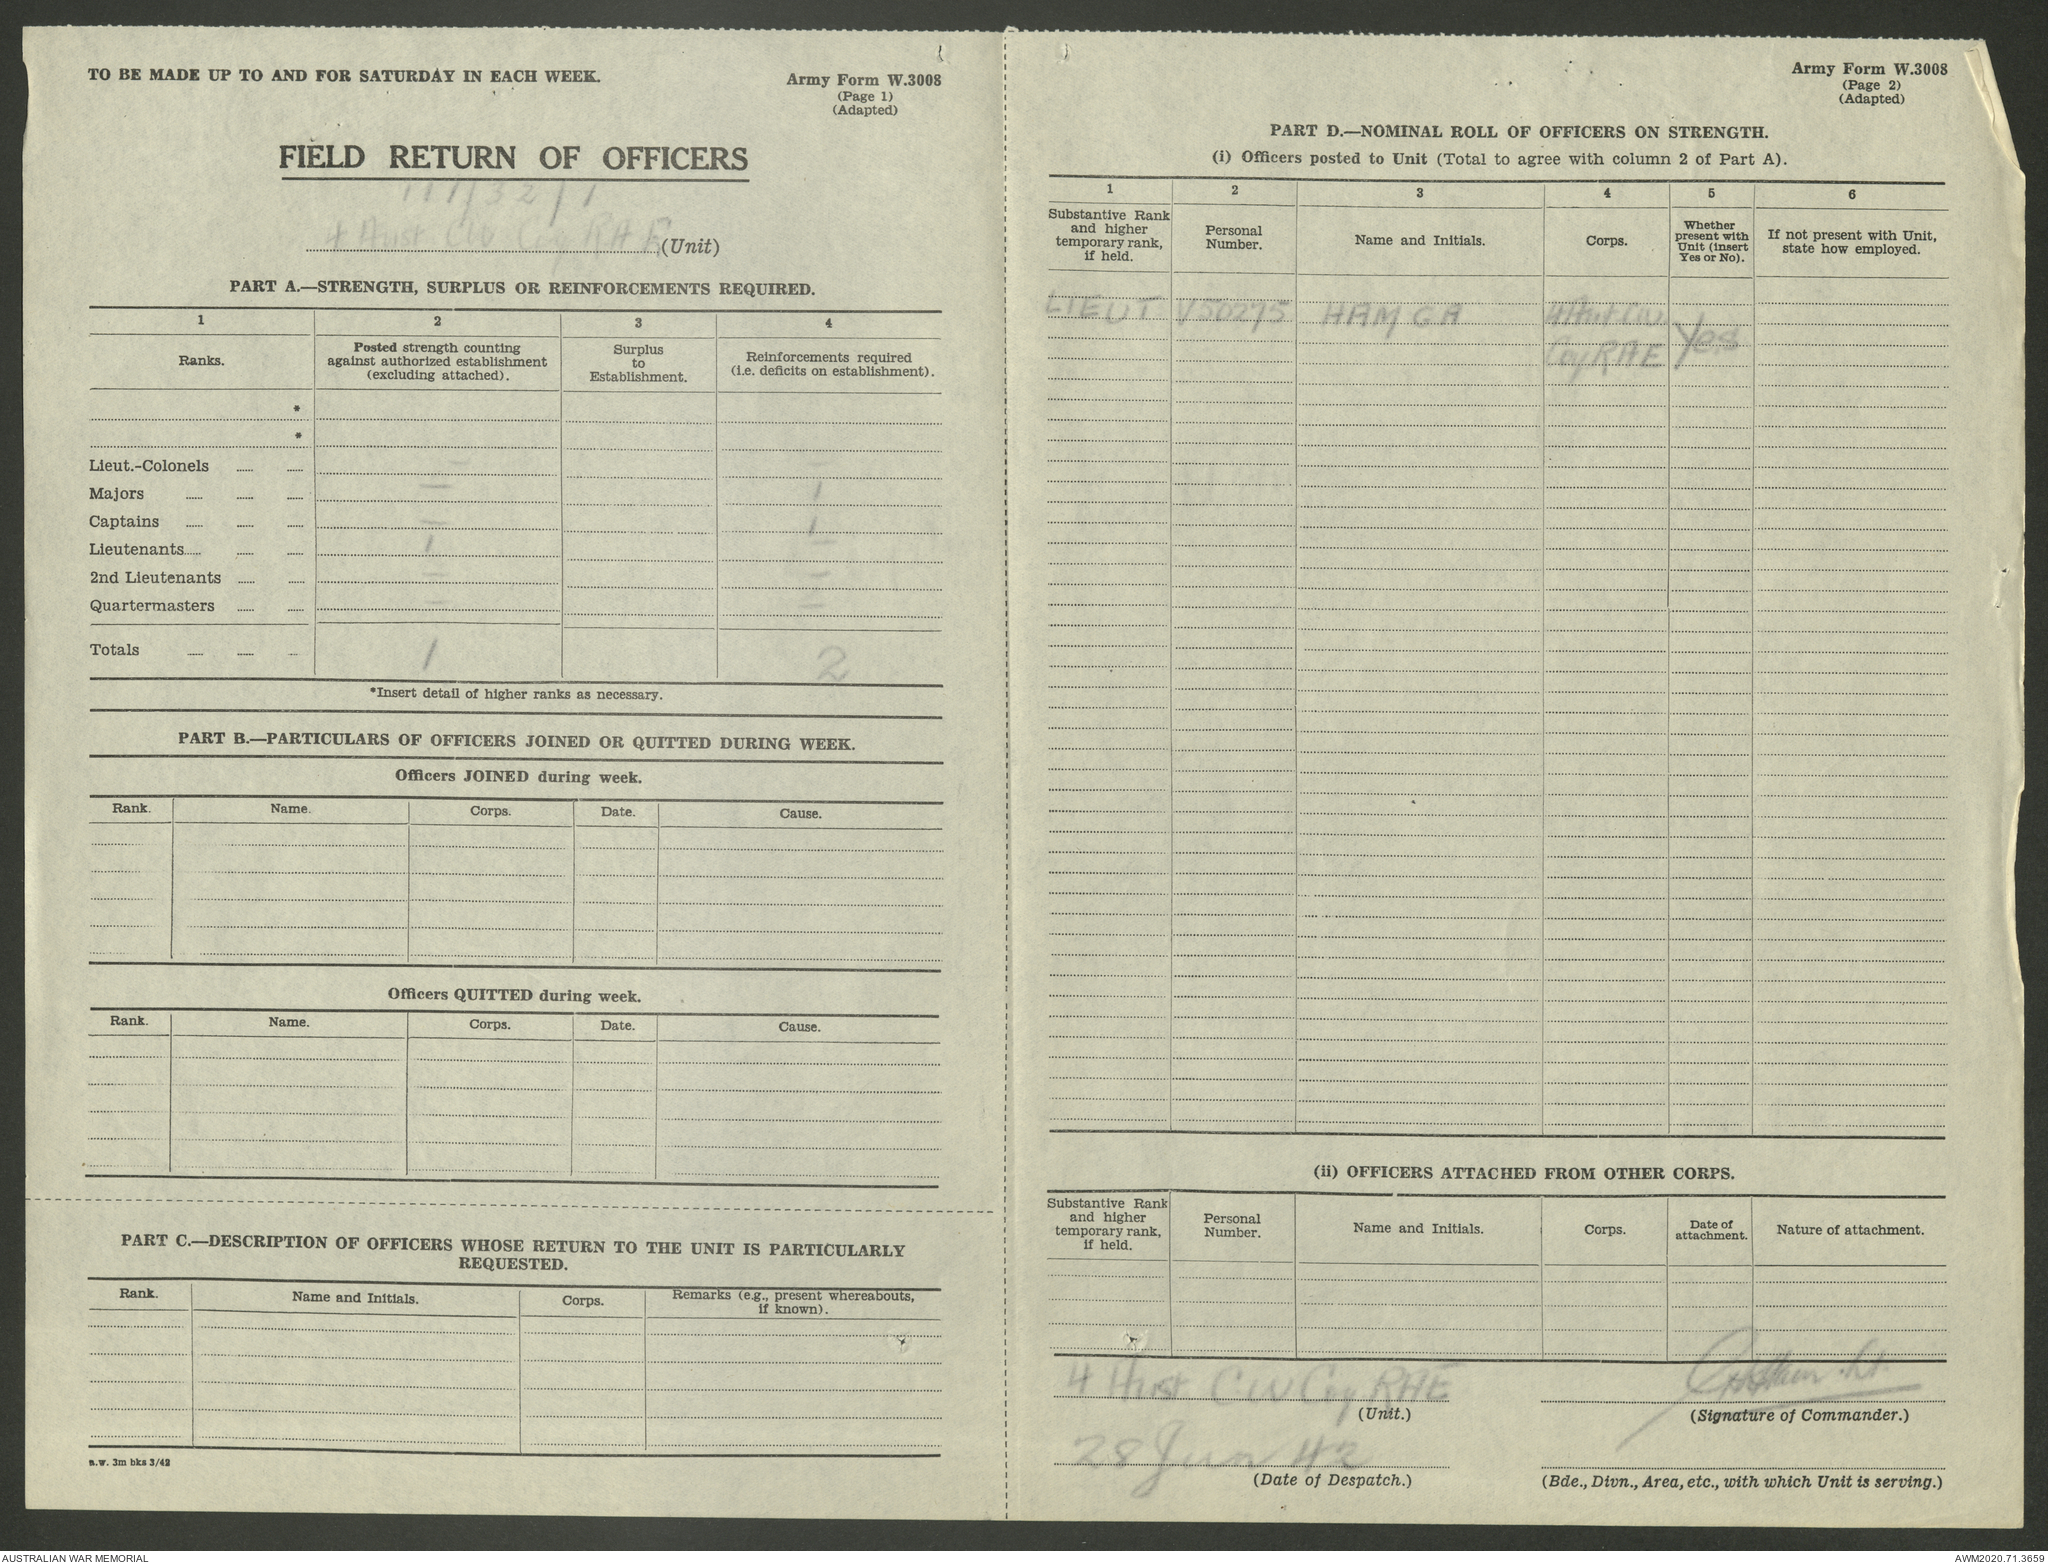 TO BE MADE UP TO AND FOR SATURDAY IN EACH WEEK.
Army Form W.3008
(Page 1)
(Adapted)
FIELD RETURN OF OFFICERS
4 Aust CW Coy RAE (Unit)
PART A.—STRENGTH, SURPLUS OR REINFORCEMENTS REQUIRED.
1 2 3 4
Ranks. Posted strength counting against authorized establishment (excluding attached). Surplus to Establishment. Reinforcements required (i.e. deficits on establishment).
*
*
Lieut.-Colonels — —
Majors — 1
Captains — 1
Lieutenants 1 —
2nd Lieutenants — —
Quartermasters — —
Totals 1 2
*Insert detail of higher ranks as necessary.
PART B.—PARTICULARS OF OFFICERS JOINED OR QUITTED DURING WEEK.
Officers JOINED during week.
Rank. Name. Corps. Date. Cause.
Officers QUITTED during week.
Rank. Name. Corps. Date. Cause.
PART C.—DESCRIPTION OF OFFICERS WHOSE RETURN TO THE UNIT IS PARTICULARLY
REQUESTED.
Rank. Name and Initials. Corps. Remarks (e.g., present whereabouts, if known).
a.w. 3m bks 3/42
Army Form W.3008
(Page 2)
(Adapted)
PART D.—NOMINAL ROLL OF OFFICERS ON STRENGTH.
(i) Officers posted to Unit (Total to agree with column 2 of Part A).
1 2 3 4 5 6
Substantive Rank and higher temporary rank, if held. Personal Number. Name and Initials. Corps. Whether present with Unit (insert Yes or No). If not present with Unit, state how employed.
LIEUT V50275 HAM GA 4 Aust CW
Coy RAE Yes
(ii) OFFICERS ATTACHED FROM OTHER CORPS.
Substantive Rank and higher temporary rank, if held. Personal Number. Name and Initials. Corps. Date of attachment. Nature of attachment.
4 Aust CW Coy RAE
(Unit.)
GAHam Lt
(Signature of Commander.)
28 Jun 42
(Date of Despatch.)
(Bde., Divn., Area, etc., with which Unit is serving.)
AUSTRALIAN WAR MEMORIAL
AWM2020.71.3659